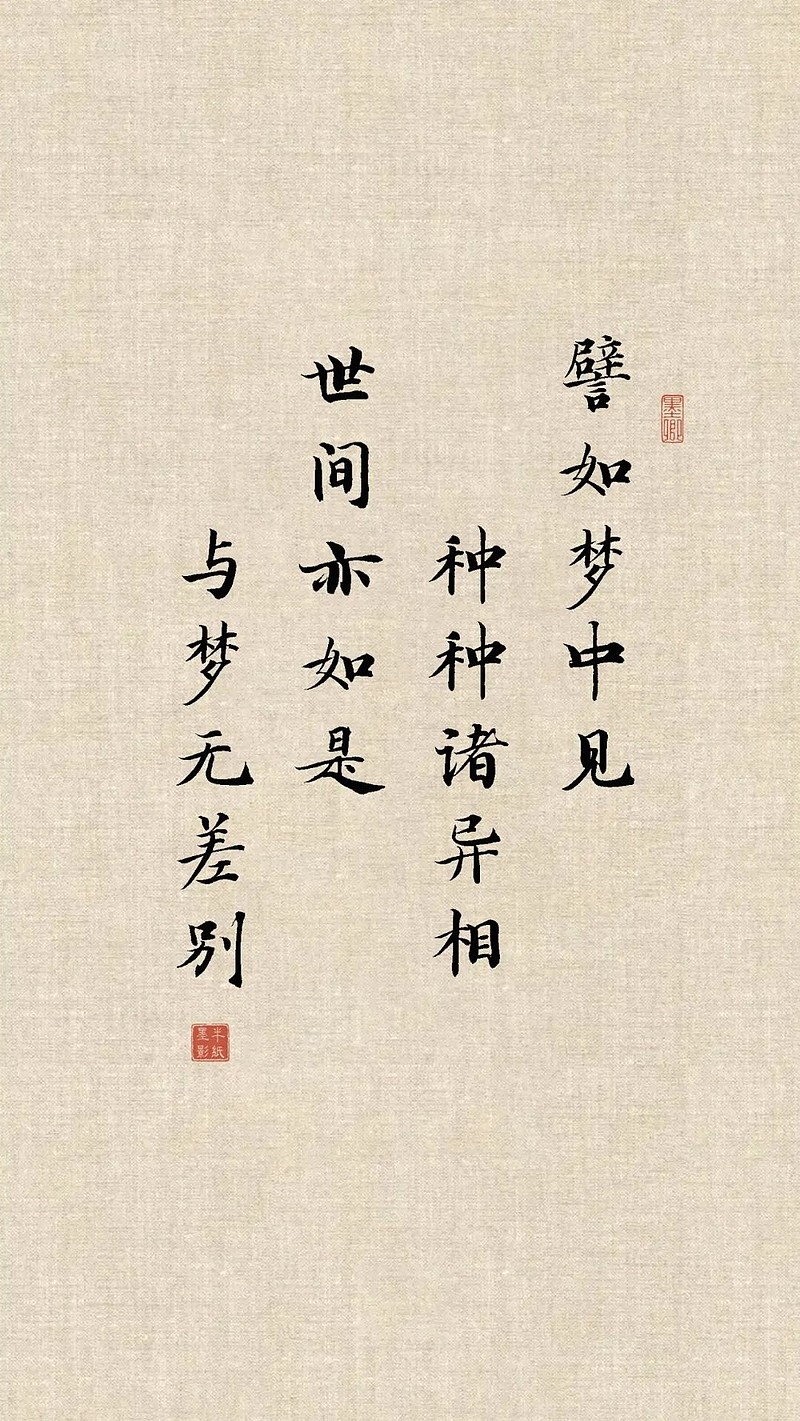 墨卿
譬如梦中见
种种诸异相
世间亦如是
与梦无差别
半纸墨影